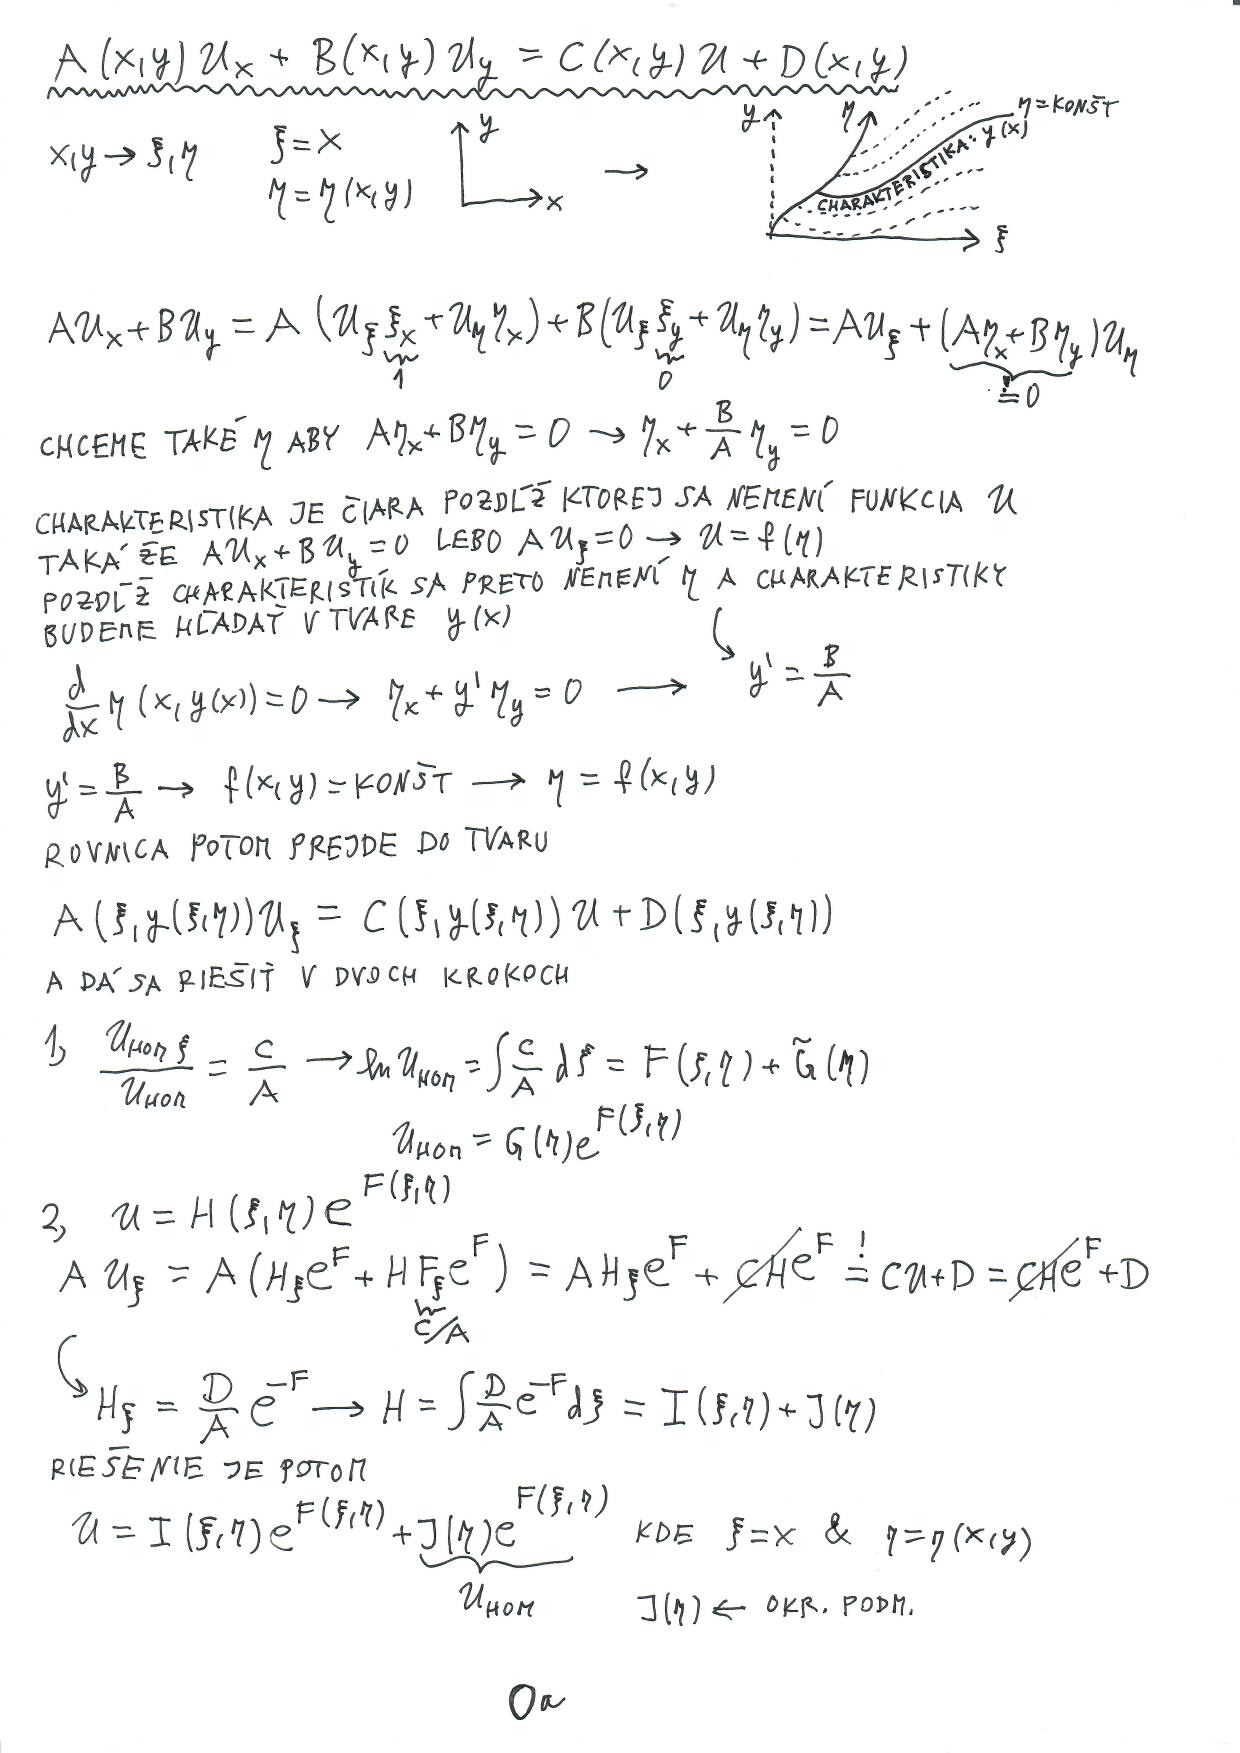 A(x,y)u_x + B(x,y)u_y = C(x,y)u + D(x,y)
x,y → ξ,η   ξ = x   y   →   y   η   η = KONŠT
η = η(x,y)   x   CHARAKTERISTIKA: y(x)   ξ
Au_x + Bu_y = A(u_ξ ξ_x + u_η η_x) + B(u_ξ ξ_y + u_η η_y) = Au_ξ + (Aη_x + Bη_y)u_η
1   0   != 0
CHCEME TAKÉ η ABY Aη_x + Bη_y = 0 → η_x + B/A η_y = 0
CHARAKTERISTIKA JE ČIARA POZDĹŽ KTOREJ SA NEMENÍ FUNKCIA u
TAKÁ ŽE Au_x + Bu_y = 0 LEBO Au_ξ = 0 → u = f(η)
POZDĹŽ CHARAKTERISTÍK SA PRETO NEMENÍ η A CHARAKTERISTIKY
BUDEME HĽADAŤ V TVARE y(x)
d/dx η(x, y(x)) = 0 → η_x + y'η_y = 0 → y' = B/A
y' = B/A → f(x,y) = KONŠT → η = f(x,y)
ROVNICA POTOM PREJDE DO TVARU
A(ξ,y(ξ,η))u_ξ = C(ξ,y(ξ,η))u + D(ξ,y(ξ,η))
A DÁ SA RIEŠIŤ V DVOCH KROKOCH
1, u_HOM ξ / u_HOM = C/A → ln u_HOM = ∫ C/A dξ = F(ξ,η) + G̃(η)
u_HOM = G(η)e^{F(ξ,η)}
2, u = H(ξ,η)e^{F(ξ,η)}
A u_ξ = A(H_ξ e^F + H F_ξ e^F) = AH_ξ e^F + CHe^F != Cu + D = CHe^F + D
C/A
H_ξ = D/A e^{-F} → H = ∫ D/A e^{-F} dξ = I(ξ,η) + J(η)
RIEŠENIE JE POTOM
u = I(ξ,η)e^{F(ξ,η)} + J(η)e^{F(ξ,η)}   KDE ξ = x & η = η(x,y)
u_HOM   J(η) ← OKR. PODM.
0a